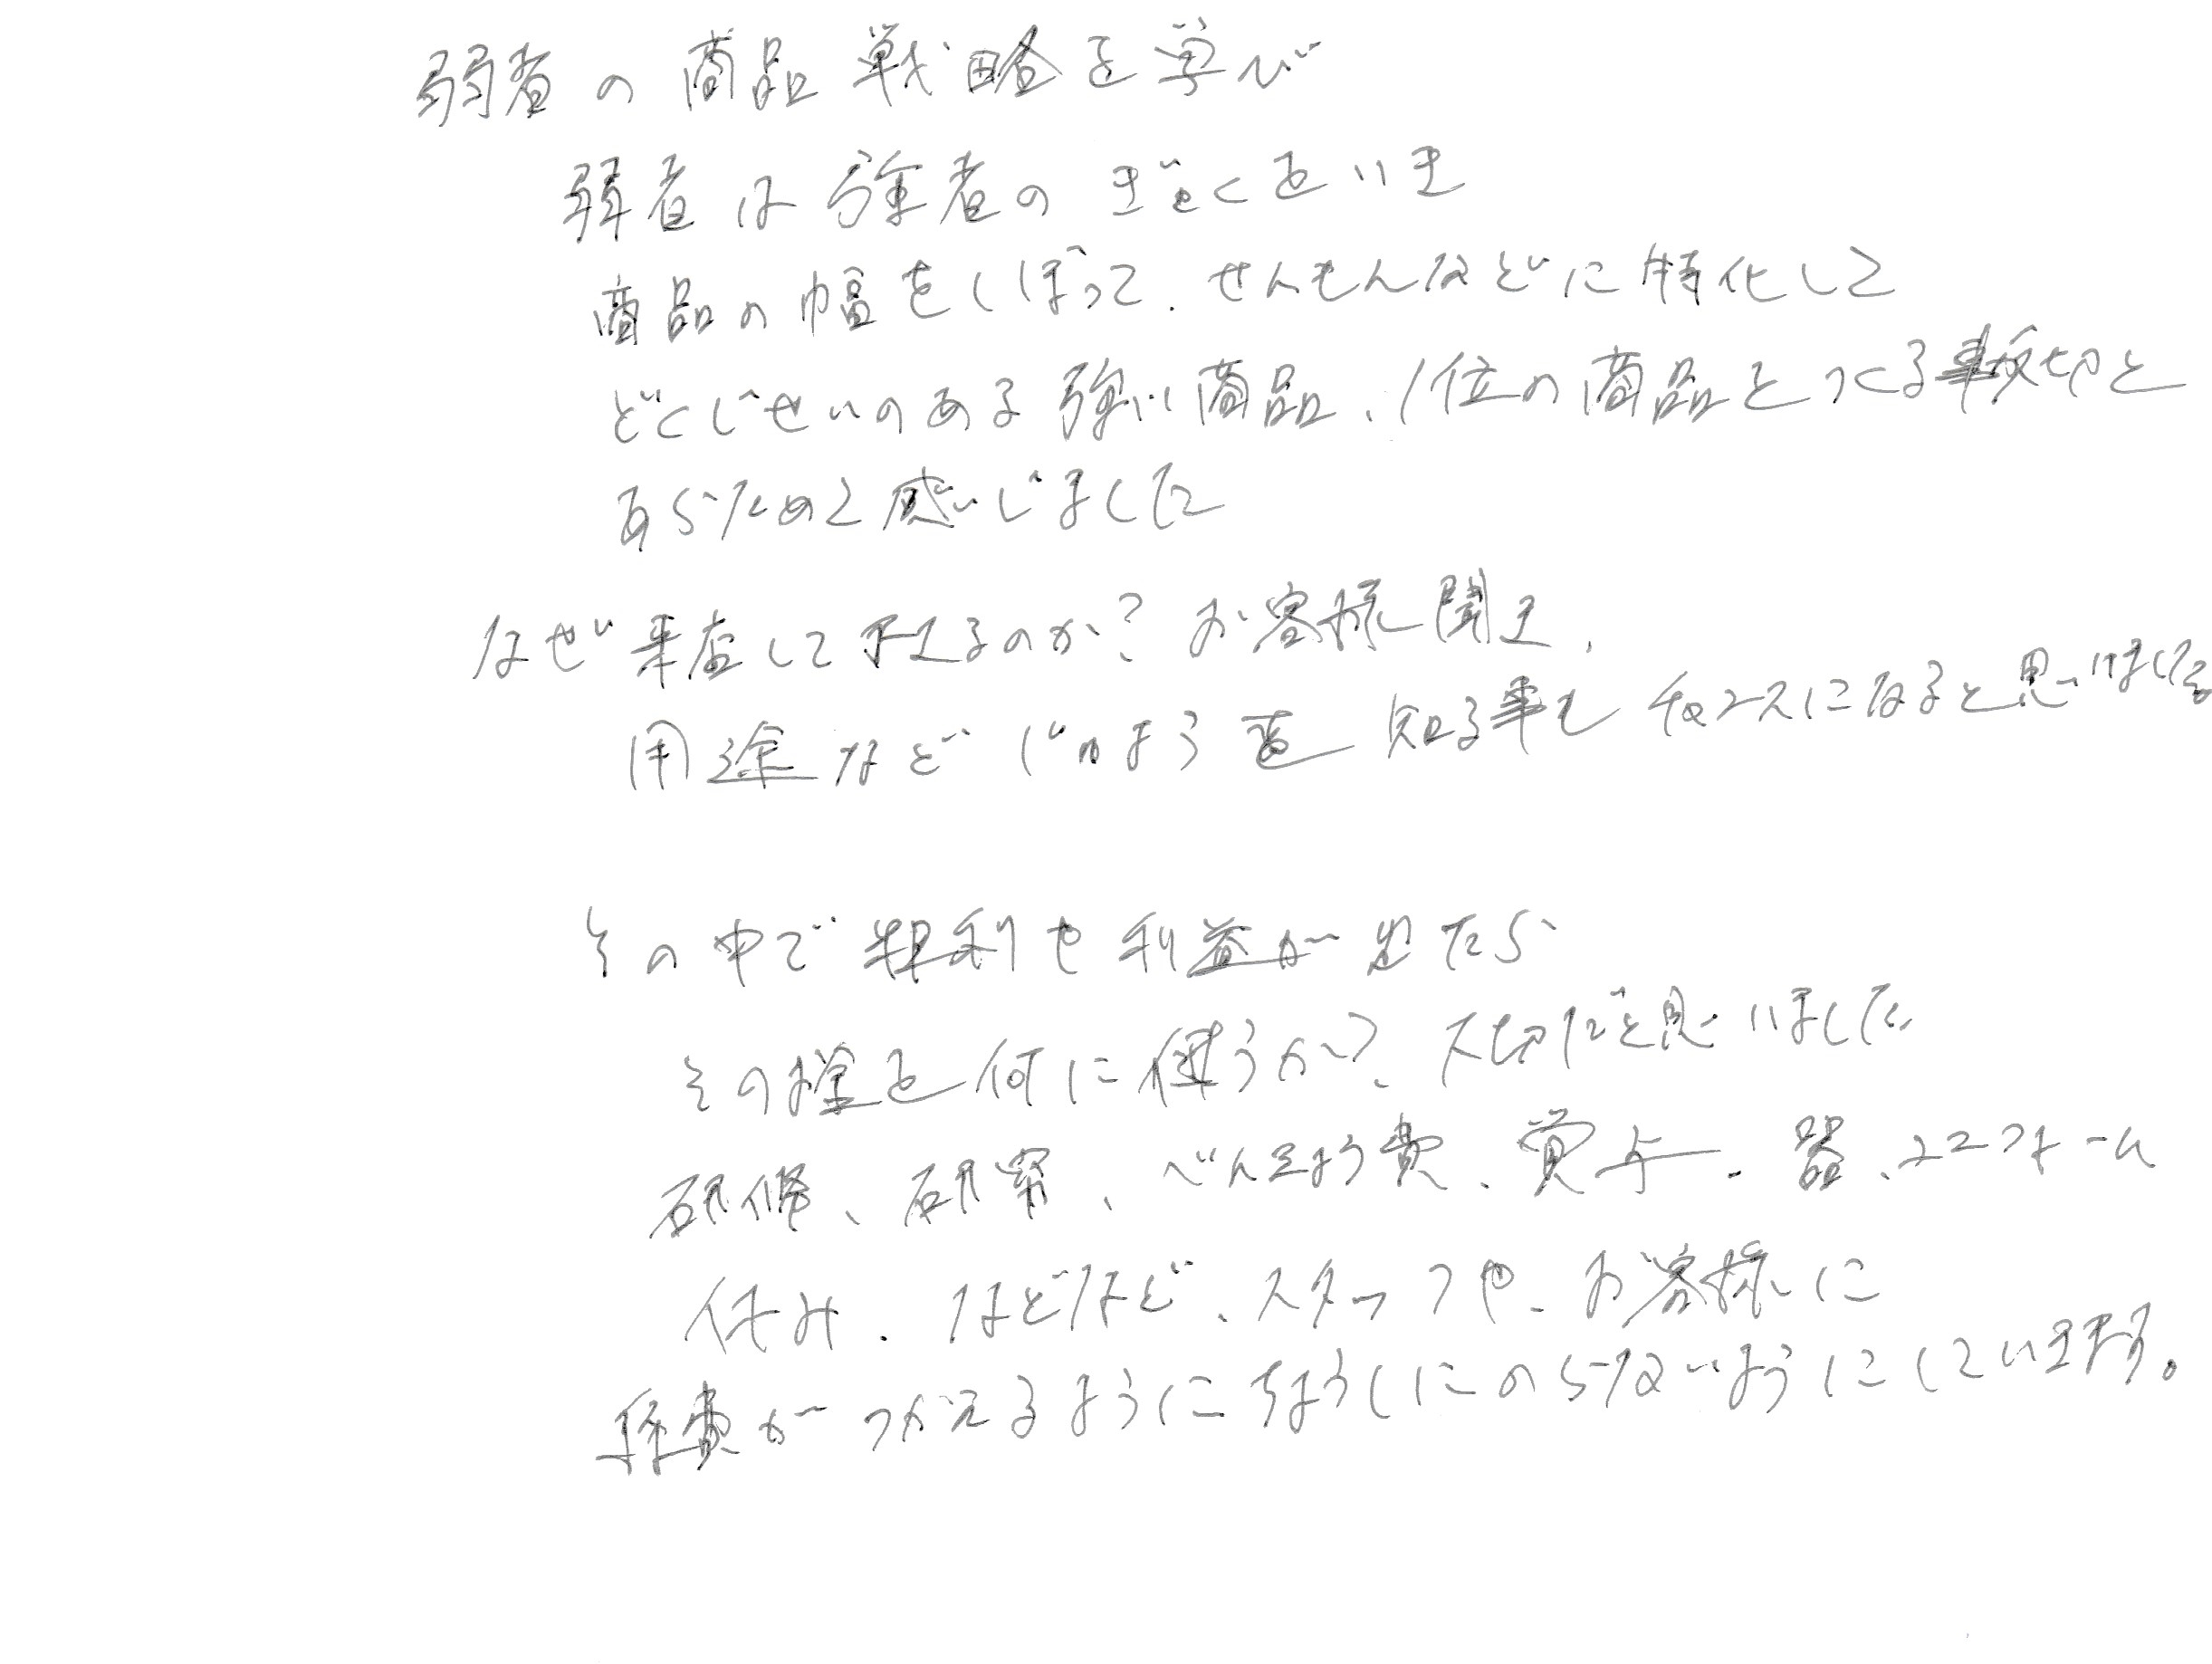 弱者の商品戦略を学び
弱者は強者のぎゃくをいき
商品の幅をしぼって、せんもんなどに特化して
どくじせいのある強い商品、1位の商品をつくる事が大切と
あらためて感いじました
なぜ来店して下さるのか?お客様聞き、
用途などじゅようを知る事もチャンスになると思いました
その中で粗利や利益が出たら
その様を何に使うか?、大切だと思いました
研修、研究、べんきょう費、賞与、器、ユニフォーム
休み、などなど、スタッフや、お客様に
経費がつかえるようにちょうしにのらないようにしています。